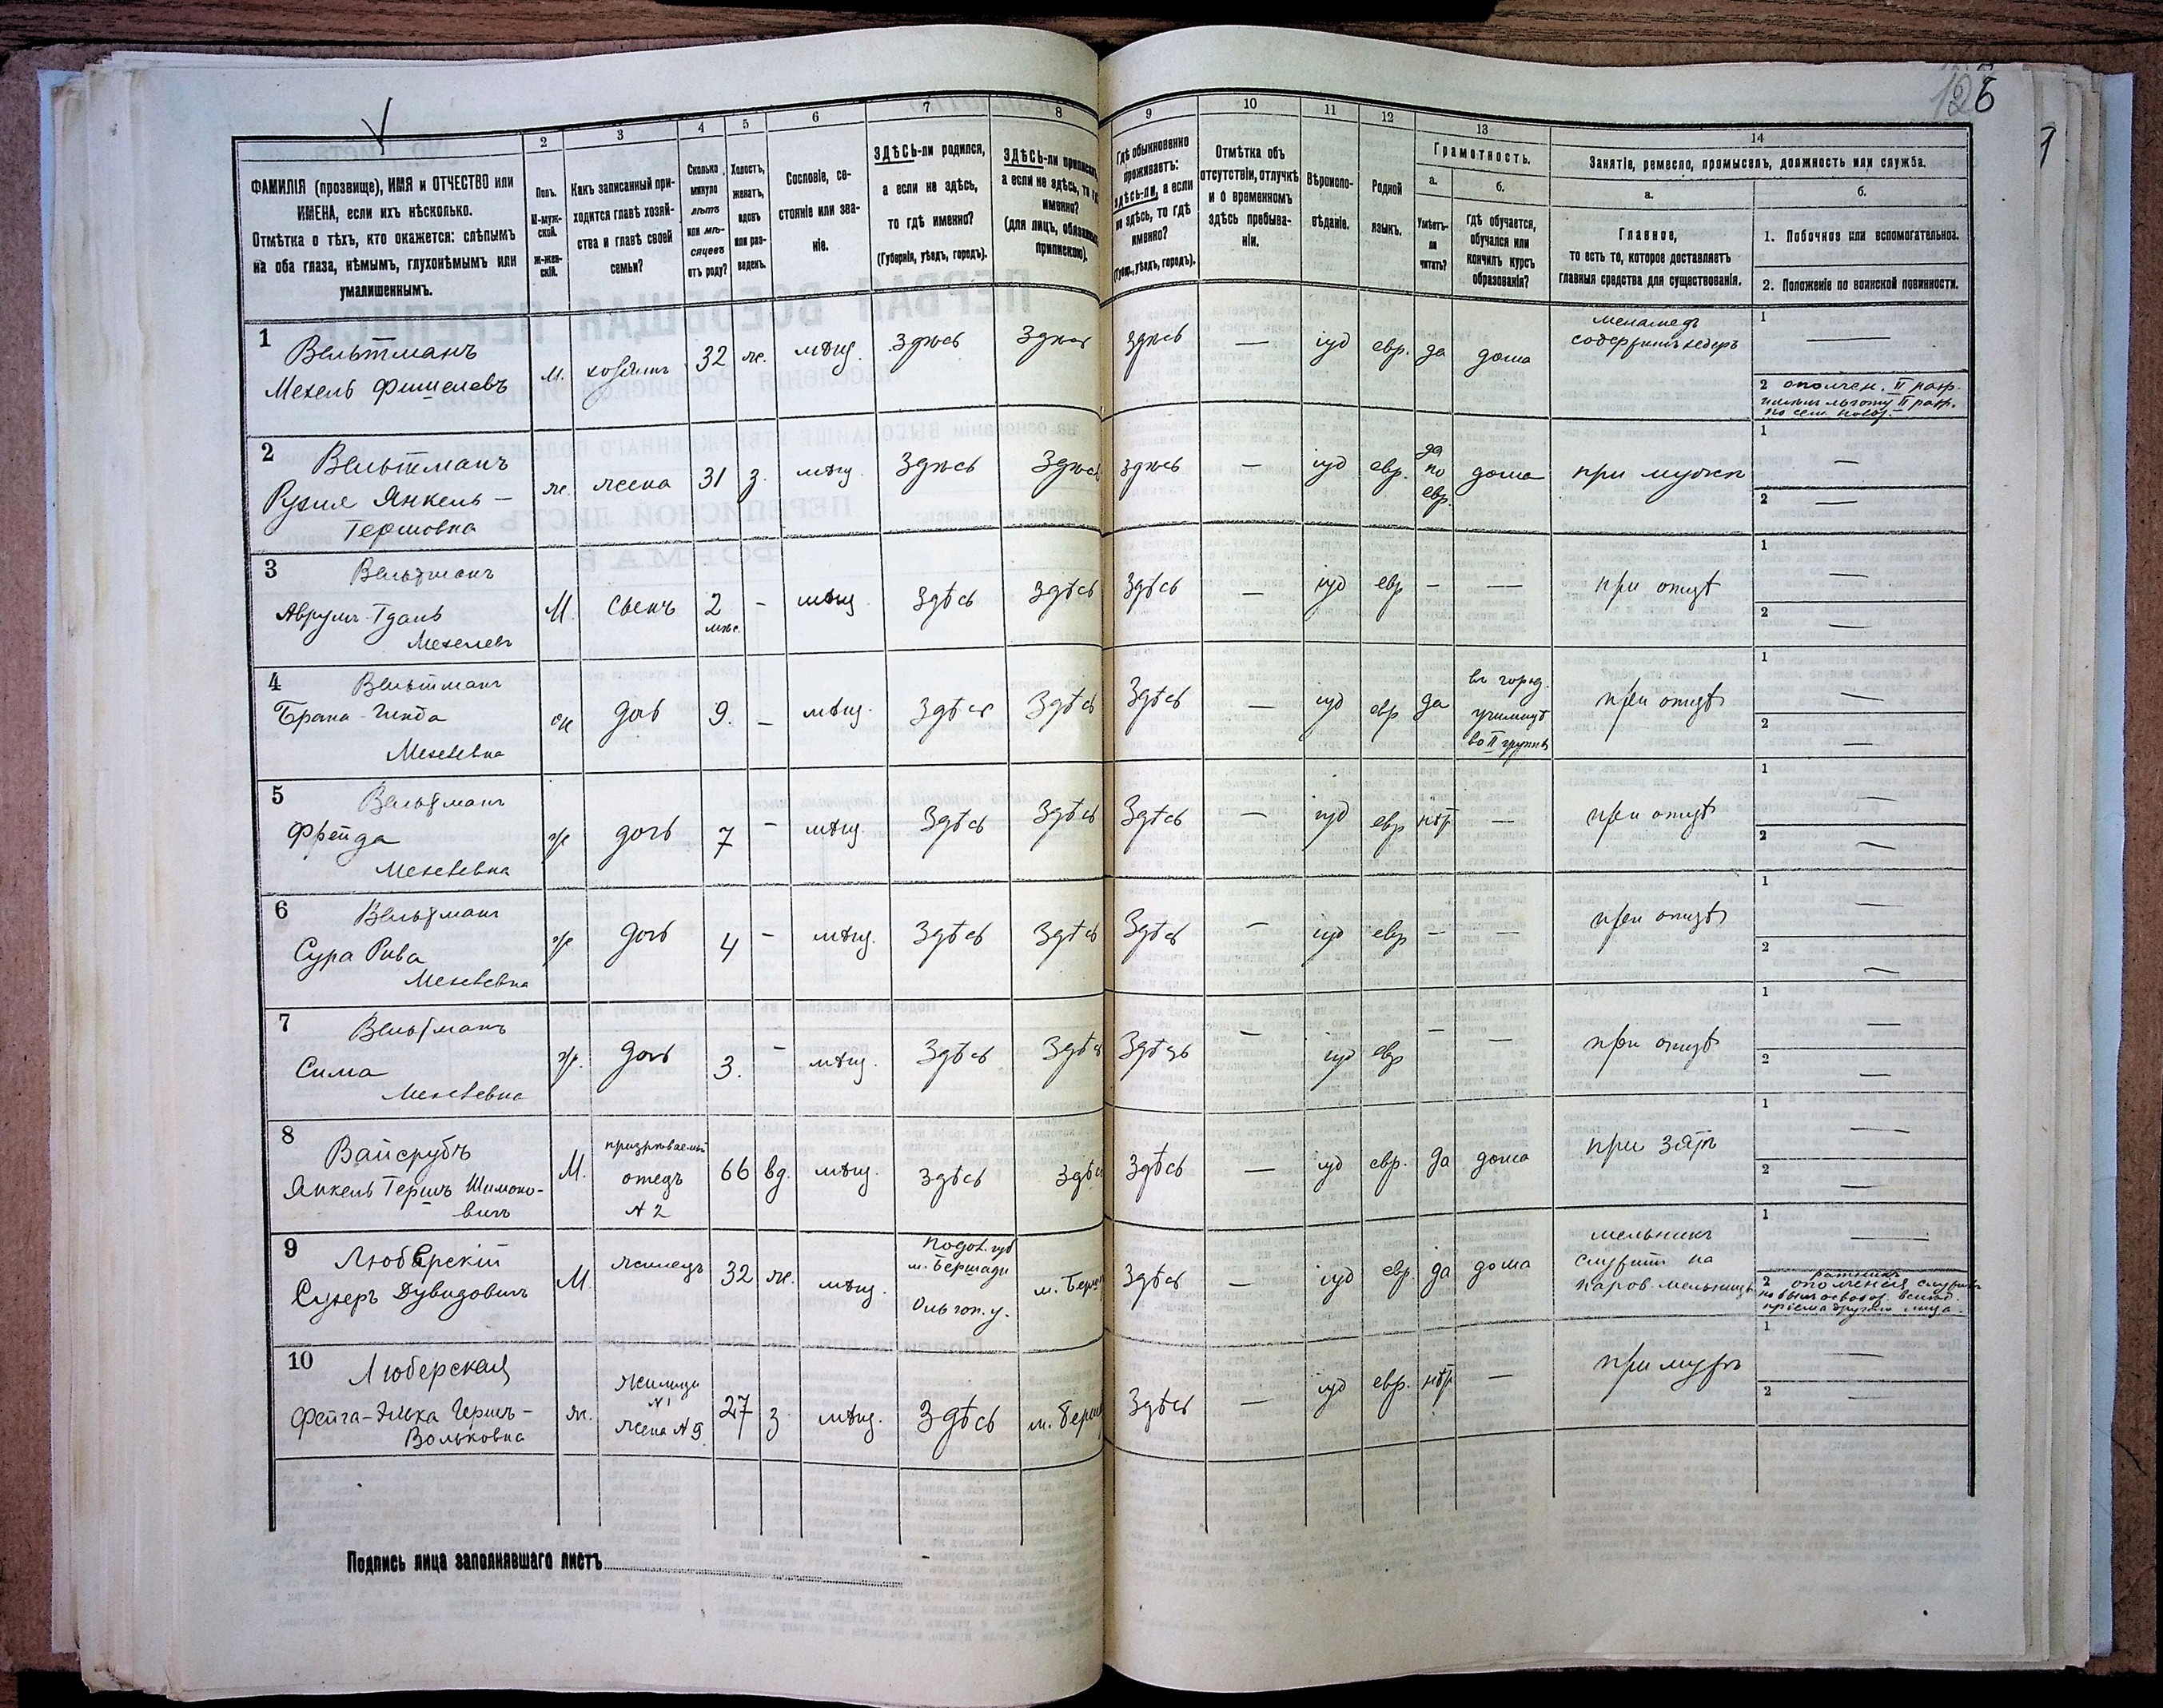 128
7
1
2
3
4
5
6
7
8
9
10
11
12
13
14
ФАМИЛІЯ (прозвище), ИМЯ и ОТЧЕСТВО или
ИМЕНА, если ихъ нѣсколько.
Отмѣтка о тѣхъ, кто окажется: слѣпымъ
на оба глаза, нѣмымъ, глухонѣмымъ или
умалишеннымъ.
Полъ.
М-муж-
ской.
Ж-жен-
скій.
Какъ записанный при-
ходится главѣ хозяй-
ства и главѣ своей
семьи?
Сколько
минуло
лѣтъ
или мѣ-
сяцевъ
отъ роду?
Холостъ,
женатъ,
вдовъ
или раз-
веденъ.
Сословіе, со-
стояніе или зва-
ніе.
ЗДѢСЬ-ли родился,
а если не здѣсь,
то гдѣ именно?
(Губернія, уѣздъ, городъ).
ЗДѢСЬ-ли приписанъ,
а если не здѣсь, то гдѣ
именно?
(для лицъ, обязанн
припискою).
Гдѣ обыкновенно
проживаетъ:
здѣсь-ли, а если
не здѣсь, то гдѣ
именно?
(Губер., уѣздъ, городъ).
Отмѣтка объ
отсутствіи, отлучкѣ
и о временномъ
здѣсь пребыва-
ніи.
Вѣроиспо-
вѣданіе.
Родной
языкъ.
Грамотность.
а.
б.
Умѣетъ-
ли
читать?
Гдѣ обучается,
обучался или
кончилъ курсъ
образованія?
Занятіе, ремесло, промыселъ, должность или служба.
а.
б.
Главное,
то есть то, которое доставляетъ
главныя средства для существованія.
1. Побочное или вспомогательное.
2. Положеніе по воинской повинности.
1
Вельтманъ
Мехель Фишелевъ
м.
хозяинъ
32
же.
мѣщ.
Здѣсь
Здѣсь
Здѣсь
—
іуд
евр.
да
дома
меламедъ
содержитъ хедеръ
1 —
2 ополчен. II разр.
льготу II разр.
по сем.
2
Вельтманъ
Рухля Янкель-
Гершовна
ж.
жена
31
з.
мѣщ.
Здѣсь
Здѣсь
Здѣсь
—
іуд
евр.
да
по
евр.
дома
при мужѣ
1 —
2 —
3
Вельтманъ
Аврумъ
Мехелевъ
М.
сынъ
2
мѣс.
-
мѣщ.
Здѣсь
Здѣсь
Здѣсь
—
іуд
евр
-
—
при отцѣ
1 —
2 —
4
Вельтманъ
Брана-Гинда
Мехелевна
ж
дочь
9.
-
мѣщ.
Здѣсь
Здѣсь
Здѣсь
—
іуд
евр
да
въ город.
училищѣ
во II группѣ
при отцѣ
1 —
2 —
5
Вельтманъ
Фрейда
Мехелевна
ж
дочь
7
-
мѣщ
Здѣсь
Здѣсь
Здѣсь
—
іуд
евр
нѣт
—
при отцѣ
1 —
2 —
6
Вельтманъ
Сура Рива
Мехелевна
ж
дочь
4
-
мѣщ.
Здѣсь
Здѣсь
Здѣсь
-
іуд
евр
-
—
при отцѣ
1 —
2 —
7
Вельтманъ
Сима
Мехелевна
ж.
дочь
3.
-
мѣщ.
Здѣсь
Здѣсь
Здѣсь
-
іуд
евр
-
—
при отцѣ
1 —
2 —
8
Вайсрубъ
Янкель Гершъ Шимоно-
вичъ
М.
призрѣваемый
отецъ
№ 2
66
вд.
мѣщ.
Здѣсь
Здѣсь
Здѣсь
—
іуд
евр.
да
дома
при зятѣ
1 —
2 —
9
Люберскій
Сухеръ Дувидовичъ
М.
жилецъ
32
же.
мѣщ.
Подол. губ
м. Бершади
Ольгоп. у.
м. Берш
Здѣсь
—
іуд
евр
да
дома
мельникъ
служитъ на
паров. мельницѣ
1 —
2 ратникъ
ополченія
пріема другого лица.
10
Люберская
Фейга-Элька Гершъ-
Вольковна
ж.
жилица
№1
жена №9
27
з
мѣщ.
Здѣсь
м. Берш
Здѣсь
—
іуд
евр.
нѣт
—
при мужѣ
1 —
2 —
Подпись лица заполнявшаго листъ